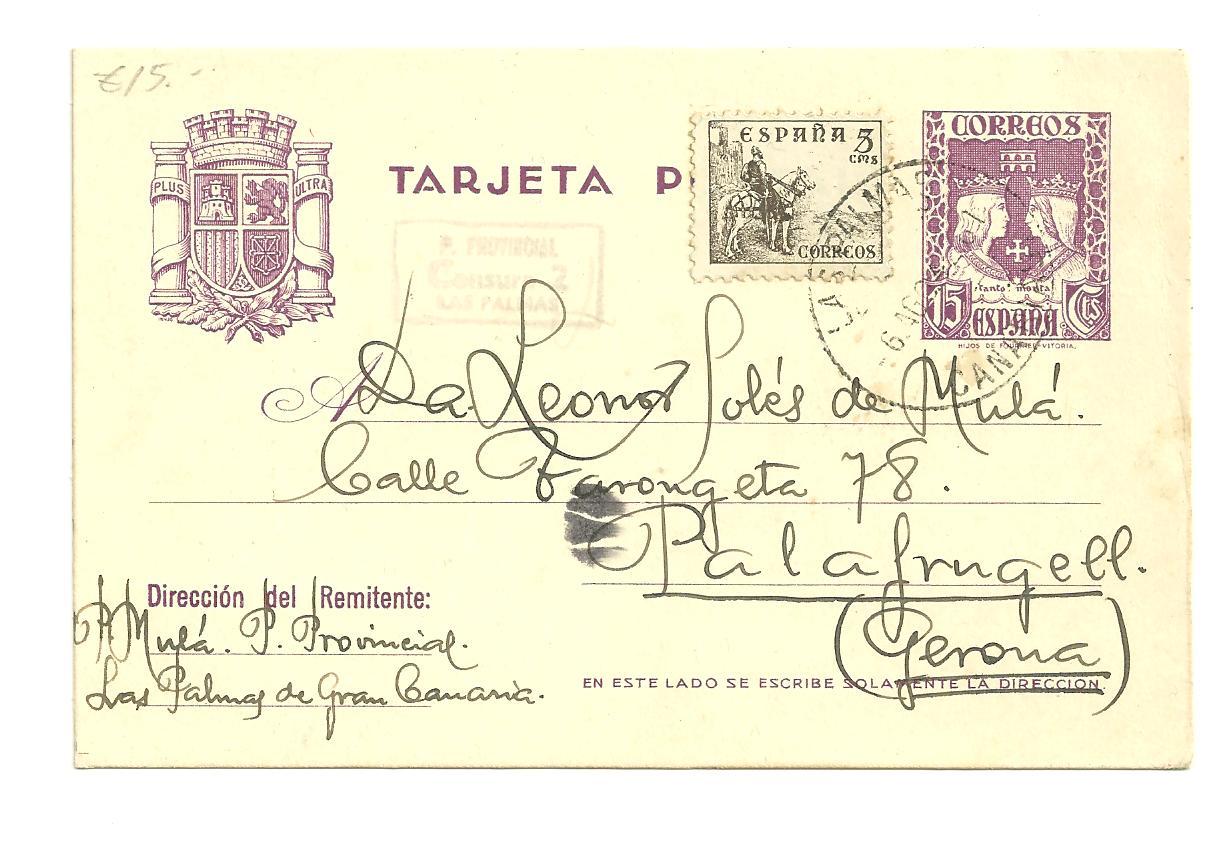 €15.-
PLUS ULTRA
TARJETA P
ESPAÑA 5
CMS
CORREOS
CORREOS
tanto monta
15 Cts
ESPAÑA
HIJOS DE FOURNIER-VITORIA.
LAS PALMAS
6 AGO
CANA
P. PROVINCIAL
Censura 2
LAS PALMAS
A Da Leonor Solés de Mulá.
Calle Tarongeta 78.
Palafrugell.
(Gerona)
Dirección del Remitente:
P. Mulá. P. Provincial.
Las Palmas de Gran Canaria.
EN ESTE LADO SE ESCRIBE SOLAMENTE LA DIRECCION.